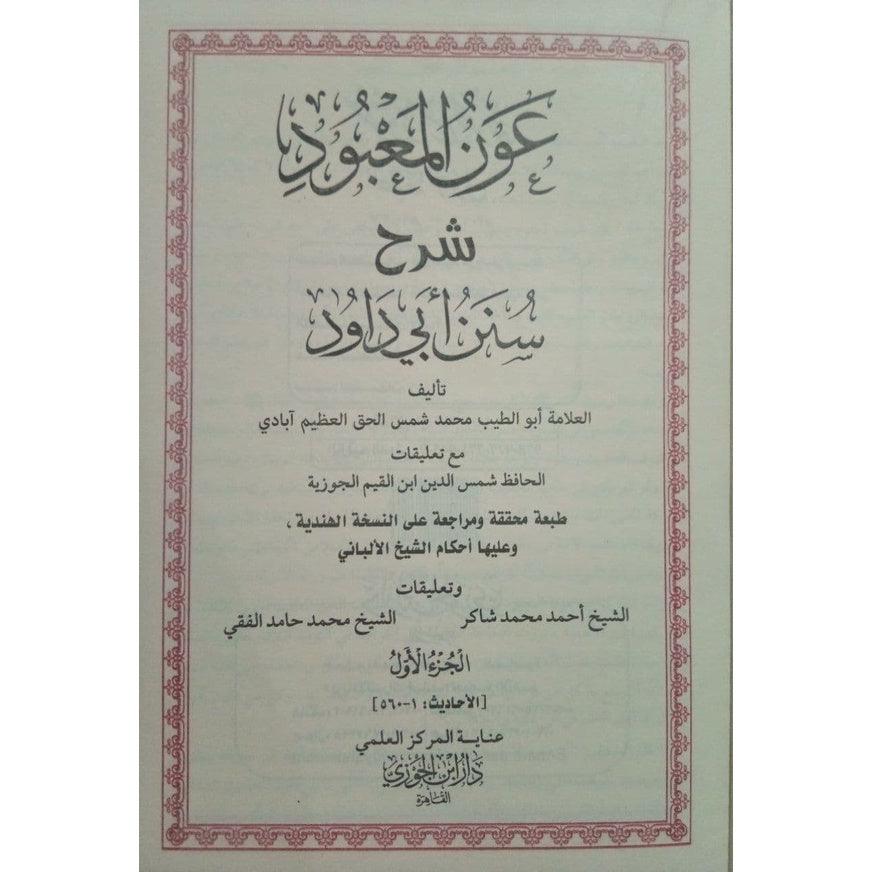 عَوْنُ المَعْبُودِ
شرح
سُنَن أَبي دَاوُد
تأليف
العلامة أبو الطيب محمد شمس الحق العظيم آبادي
مع تعليقات
الحافظ شمس الدين ابن القيم الجوزية
طبعة محققة ومراجعة على النسخة الهندية ،
وعليها أحكام الشيخ الألباني
وتعليقات
الشيخ أحمد محمد شاكر الشيخ محمد حامد الفقي
الْجُزْءُ الْأَوَّلُ
[الأحاديث: ١-٥٦٠]
عناية المركز العلمي
دَارُ ابْنِ الجَوْزِي
القَاهِرَة